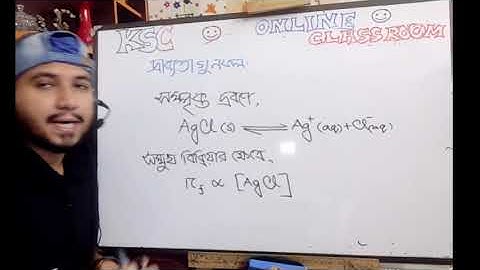 KSC ☺ ONLINE ☺
CLASSROOM
দ্রাব্যতা গুনফল
সম্পৃক্ত দ্রবণে,
AgCl(s) ⇌ Ag⁺(aq) + Cl⁻(aq)
সম্মুখ বিক্রিয়ার ক্ষেত্রে,
r_f ∝ [AgCl]